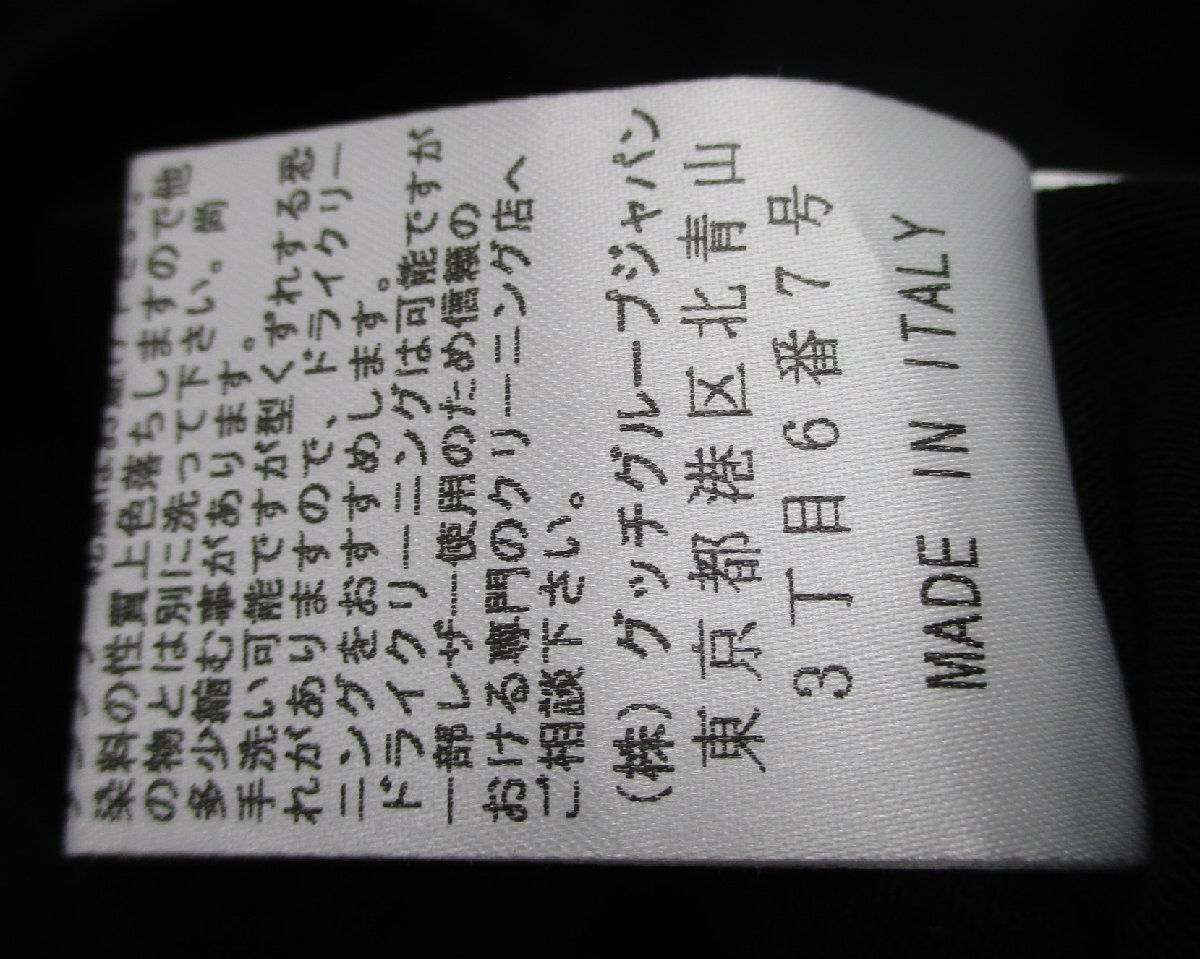 染料の性質上色落ちしますので他
の物とは別に洗って下さい。尚
多少縮む事があります。
手洗い可能ですが型くずれする恐
れがありますので、ドライクリー
ニングをおすすめします。
ドライクリーニングは可能ですが
一部レザー使用のため信頼の
おける専門のクリーニング店へ
ご相談下さい。
(株)グッチグループジャパン
東京都港区北青山
3丁目6番7号
MADE IN ITALY